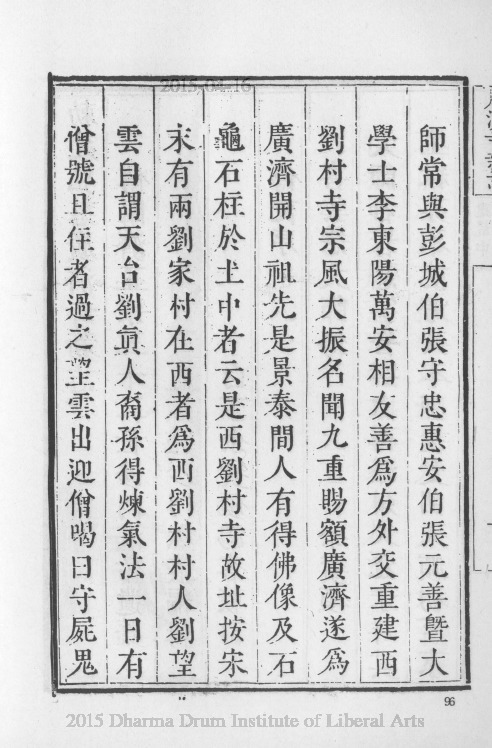 2015-04-16
師常與彭城伯張守忠惠安伯張元善暨大
學士李東陽萬安相友善爲方外交重建西
劉村寺宗風大振名聞九重賜額廣濟遂爲
廣濟開山祖先是景泰間人有得佛像及石
龜石柱於土中者云是西劉村寺故址按宋
末有兩劉家村在西者爲西劉村村人劉望
雲自謂天台劉眞人裔孫得煉氣法一日有
僧號且住者過之望雲出迎僧喝曰守屍鬼
96
2015 Dharma Drum Institute of Liberal Arts